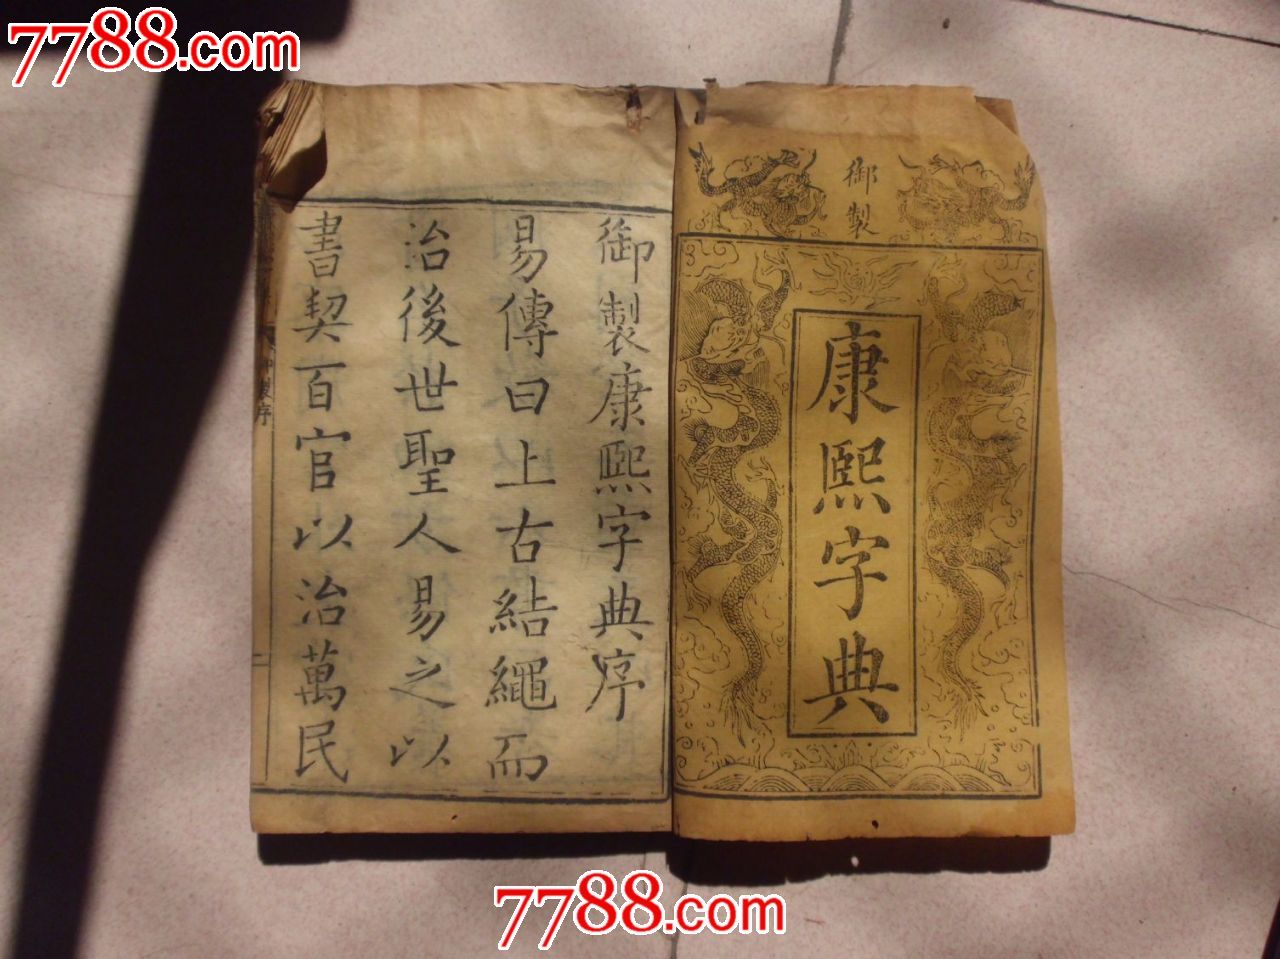 7788.com
御製
康熙字典
御製康熙字典序
易傳曰上古結繩而
治後世聖人易之以
書契百官以治萬民
製序
二
7788.com